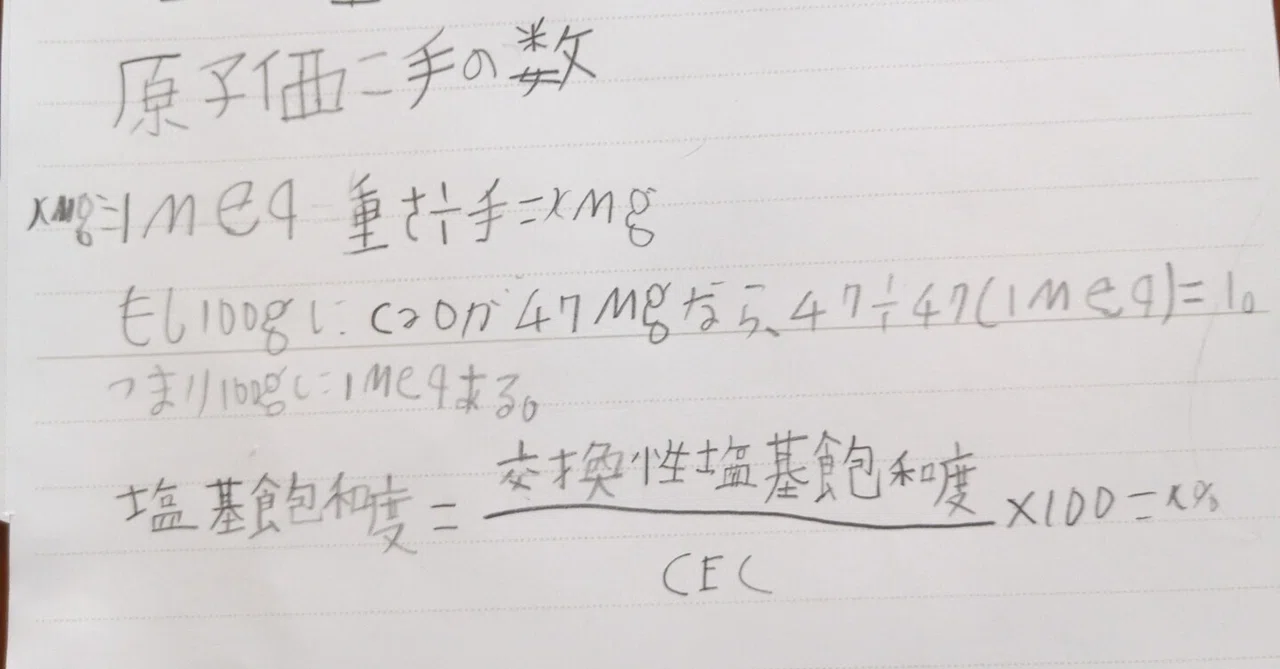 原子価=手の数
xmg=1meq 重さ÷手=xmg
もし100gにCaOが47mgなら、47÷47(1meq)=1。
つまり100gに1meqある。
塩基飽和度=交換性塩基飽和度/CEC×100=x%